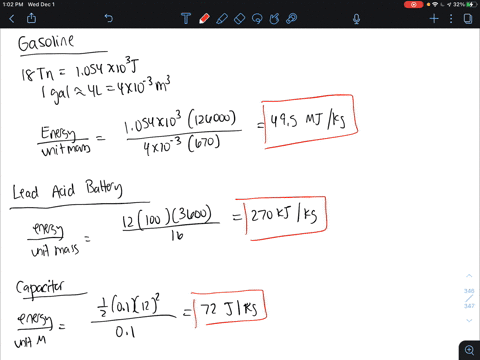 1:02 PM Wed Dec 1
32%
Gasoline
18Tn = 1.054 x10³J
1 gal ≈ 4L = 4x10⁻³ m³
Energy/unit mass = 1.054 x10³ (126000) / 4x10⁻³ (670) = 49.5 MJ/kg
Lead Acid Battery
energy/unit mass = 12(100)(3600) / 16 = 270 kJ/kg
Capacitor
energy/unit M = ½(0.1)(12)² / 0.1 = 72 J/kg
346
/
347